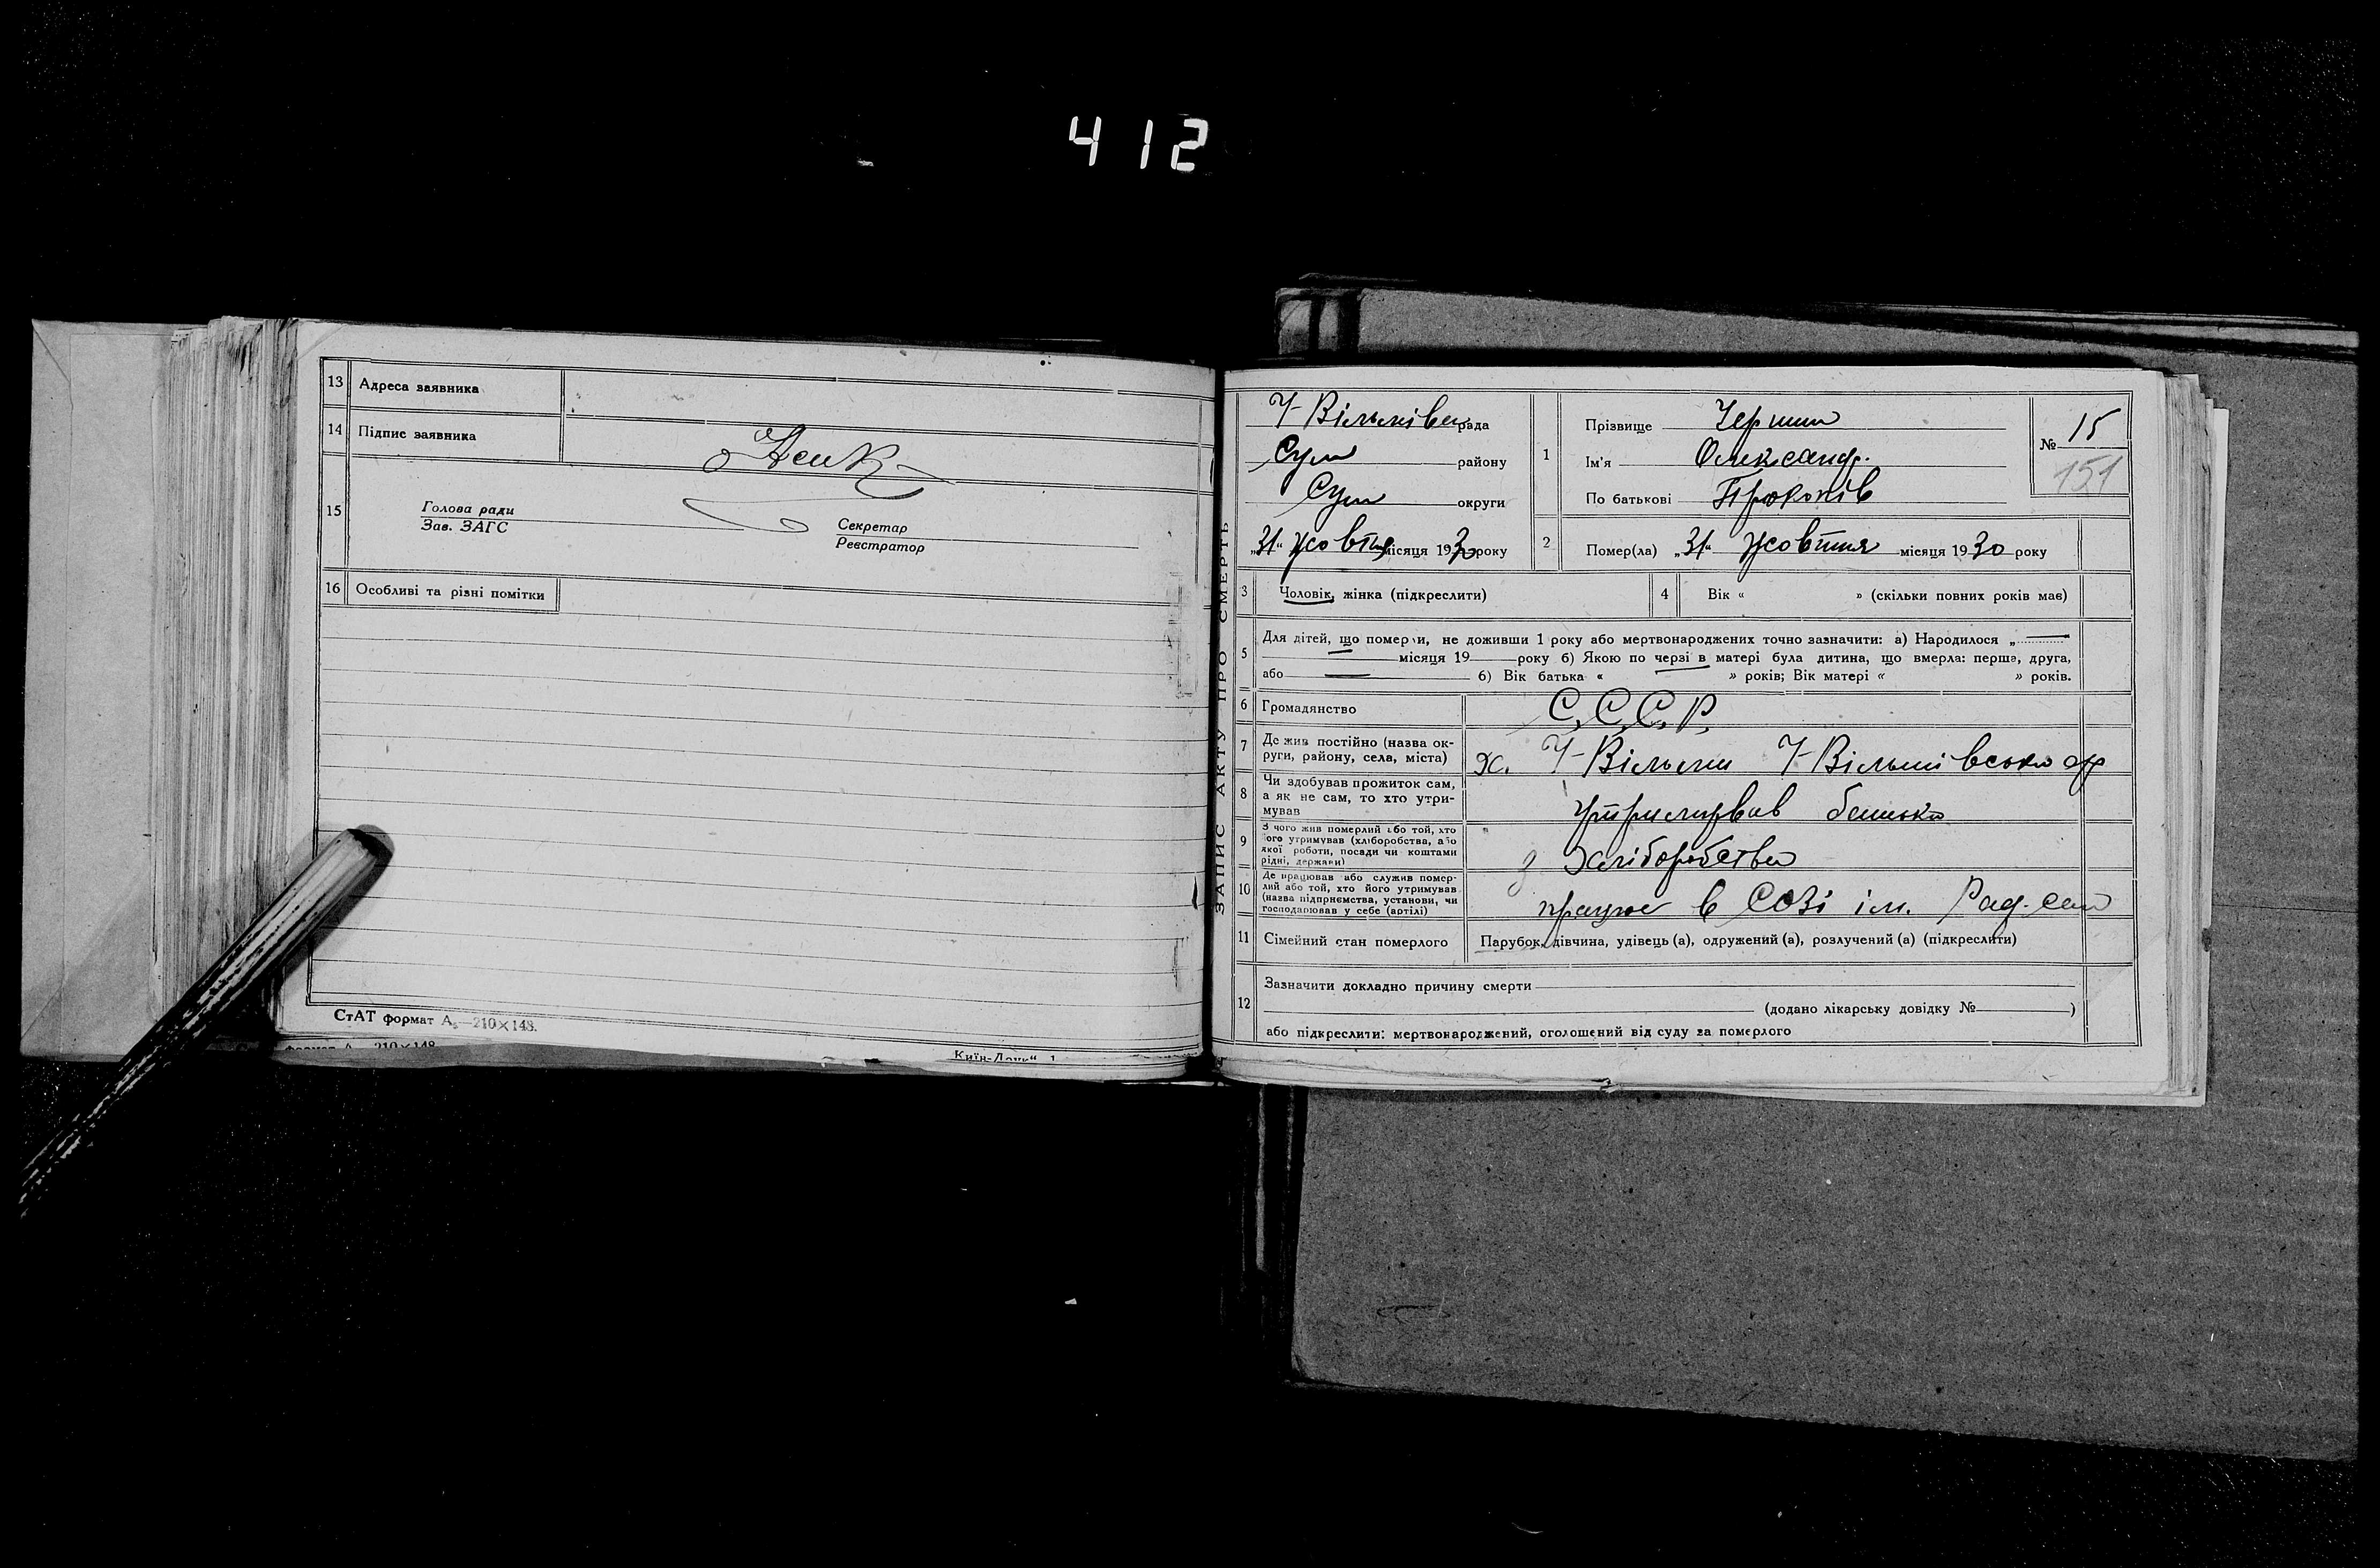 412
13 Адреса заявника
14 Підпис заявника
15 Голова ради
Зав. ЗАГС
Секретар
Реєстратор
16 Особливі та різні помітки
СтАТ формат А₅—210×148.
формат А 210×148
ЗАПИС АКТУ ПРО СМЕРТЬ
рада
Сум району
Сум округи
„31“ жовтня місяця 1930 року
1 Прізвище
Ім'я Олександр.
По батькові
№ 15
151
2 Помер(ла) „31“ жовтня місяця 1930 року
3 Чоловік, жінка (підкреслити)
4 Вік « » (скільки повних років має)
5 Для дітей, що померли, не доживши 1 року або мертвонароджених точно зазначити: а) Народилося „
місяця 19 року б) Якою по черзі в матері була дитина, що вмерла: перша, друга,
або б) Вік батька « » років; Вік матері « » років.
6 Громадянство С.С.С.Р.
7 Де жив постійно (назва ок-
руги, району, села, міста)
х. У-Вільшки
8 Чи здобував прожиток сам,
а як не сам, то хто утри-
мував
утримував батько
9 З чого жив померлий або той, хто
його утримував (хліборобства, або
якої роботи, посади чи коштами
рідні, держави)
з хліборобства
10 Де працював або служив помер-
лий або той, хто його утримував
(назва підприємства, установи, чи
господарював у себе (артілі)
працює в СОЗі ім. Рад.
11 Сімейний стан померлого
Парубок, дівчина, удівець (а), одружений (а), розлучений (а) (підкреслити)
12 Зазначити докладно причину смерти
(додано лікарську довідку № )
або підкреслити: мертвонароджений, оголошений від суду за померлого